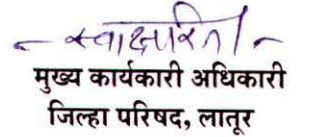 - स्वाक्षरित/-
मुख्य कार्यकारी अधिकारी
जिल्हा परिषद, लातूर